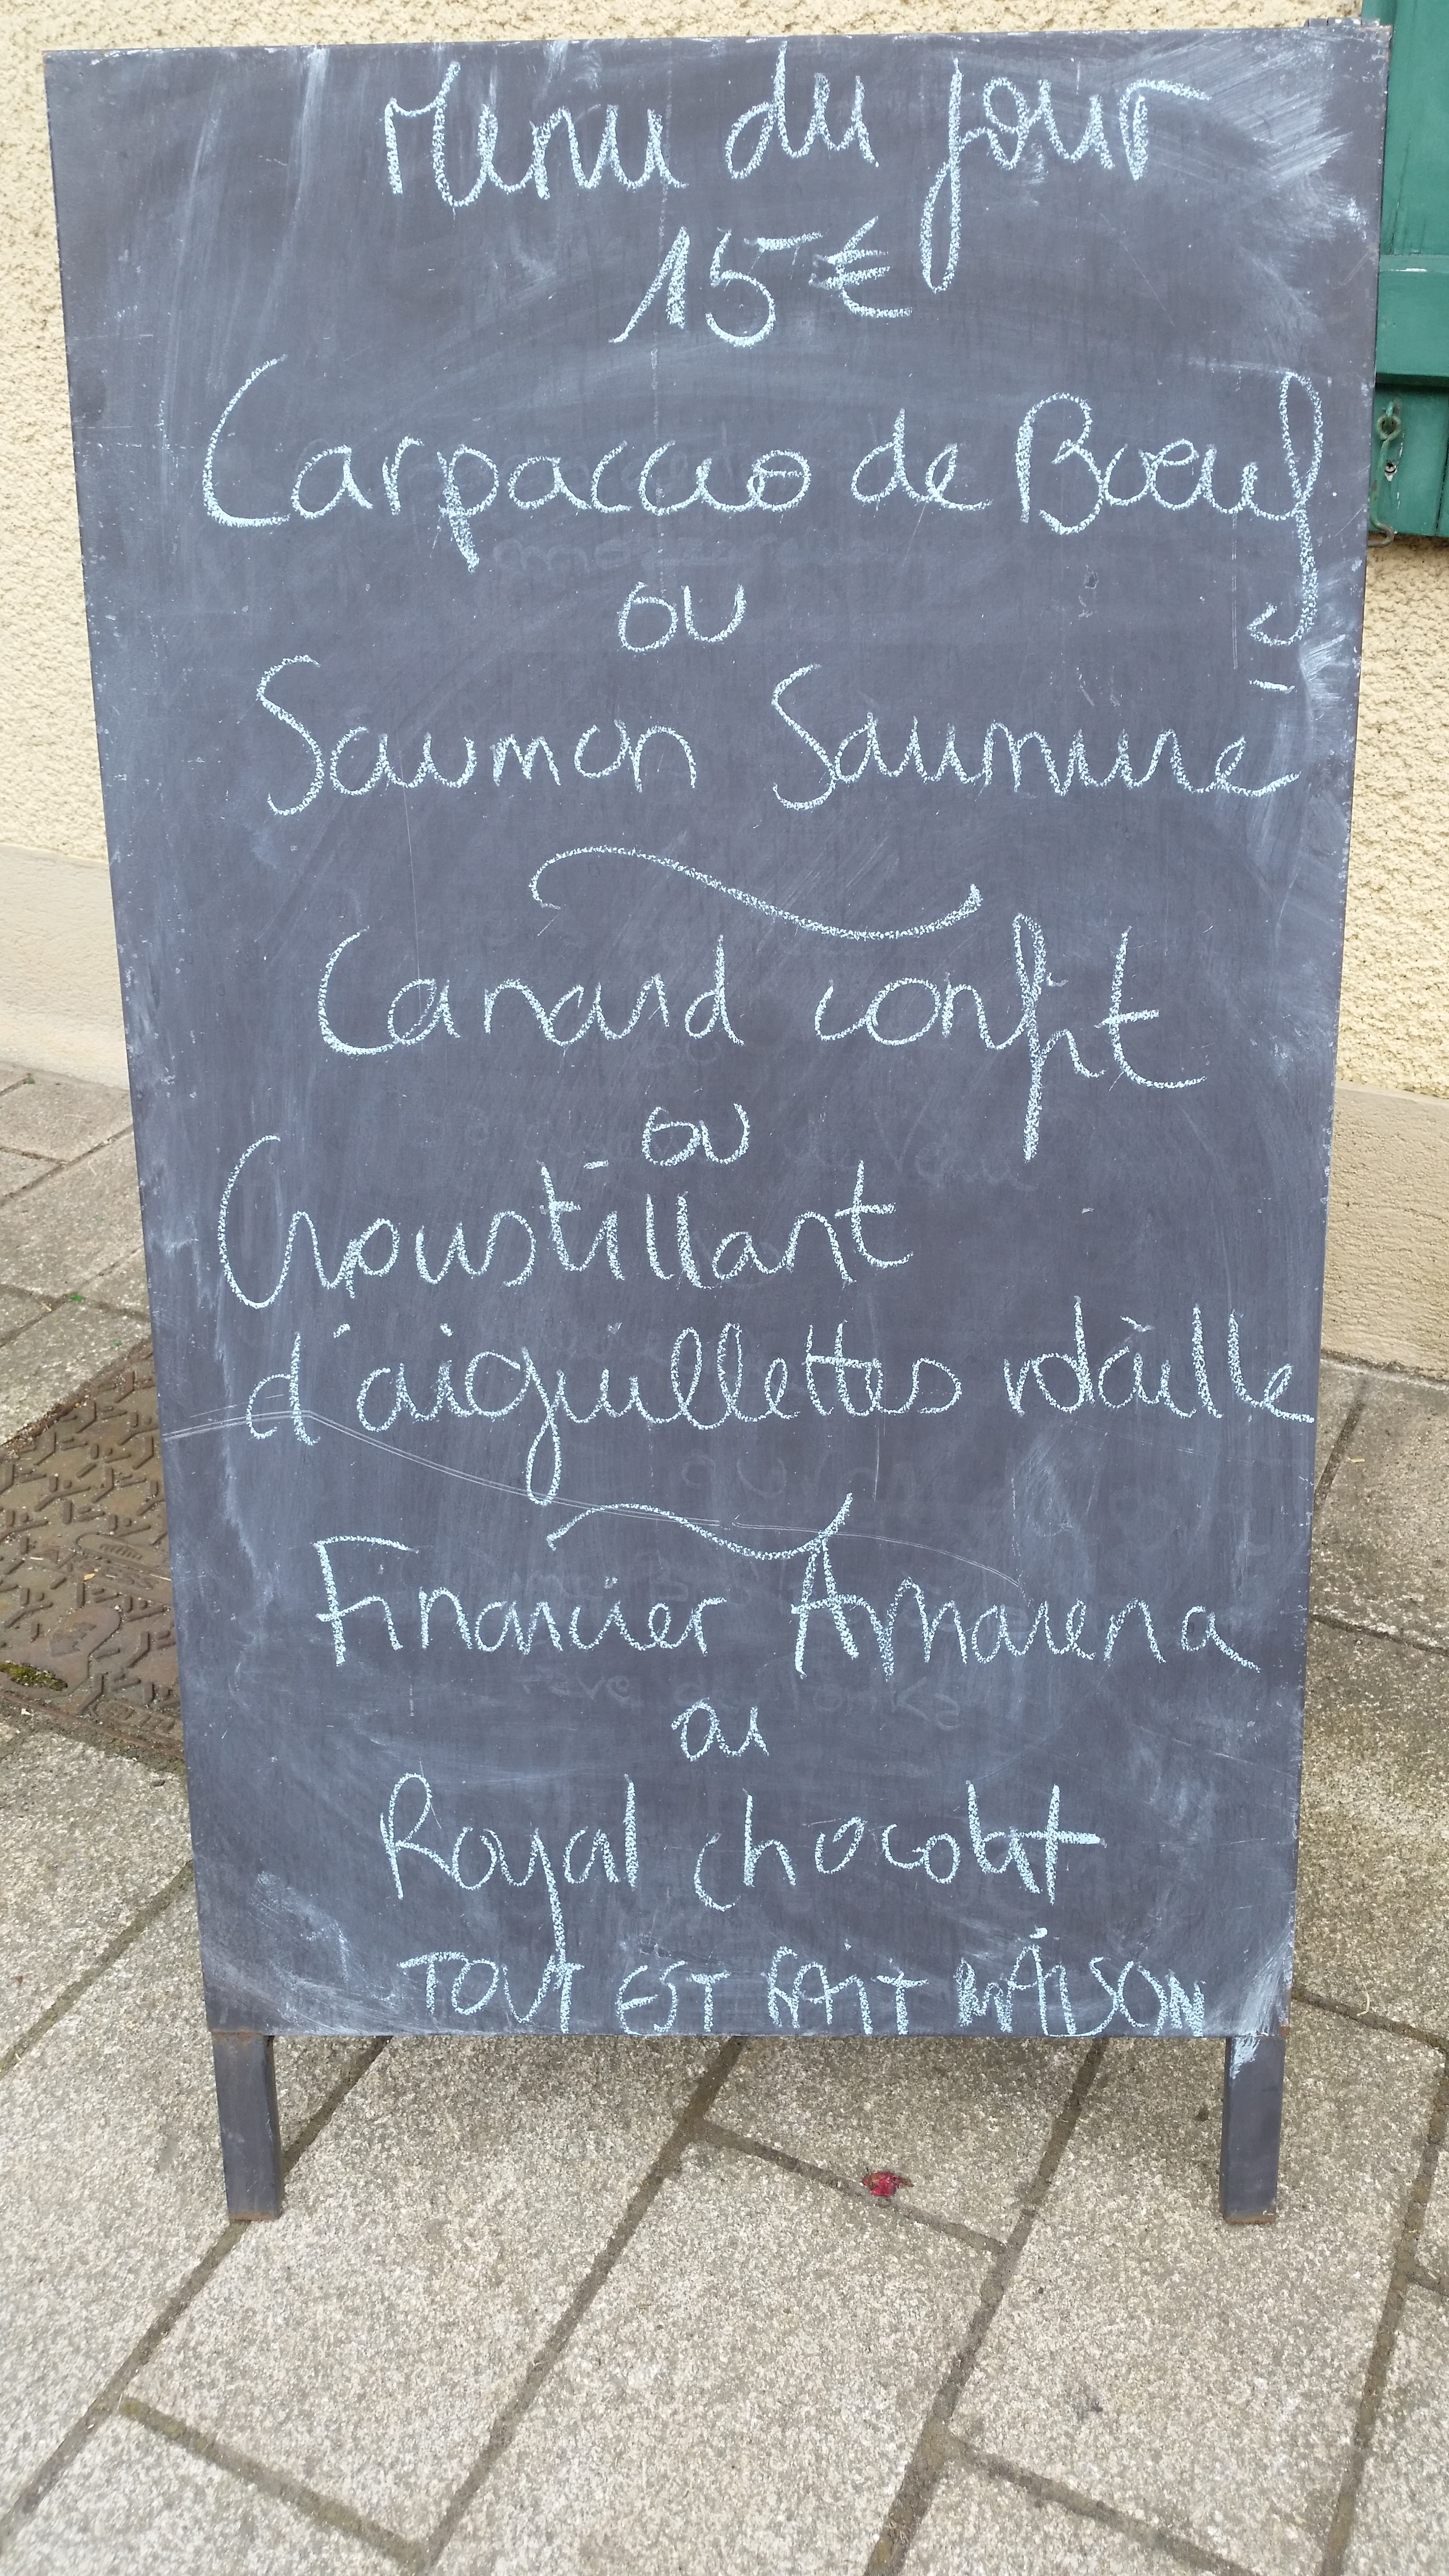 Menu du jour
15€
Carpaccio de Bœuf
ou
Saumon Saumuré
Canard confit
ou
Croustillant
d'aiguillettes volaille
Financier Amarena
ou
Royal chocolat
TOUT EST FAIT MAISON